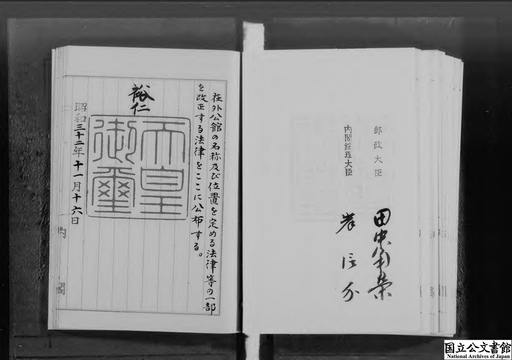 郵政大臣 田中角栄
内閣総理大臣 岸信介
在外公館の名称及び位置を定める法律等の一部
を改正する法律をここに公布する。
裕仁
天皇
御璽
昭和三十二年十一月十六日
内閣
国立公文書館
National Archives of Japan